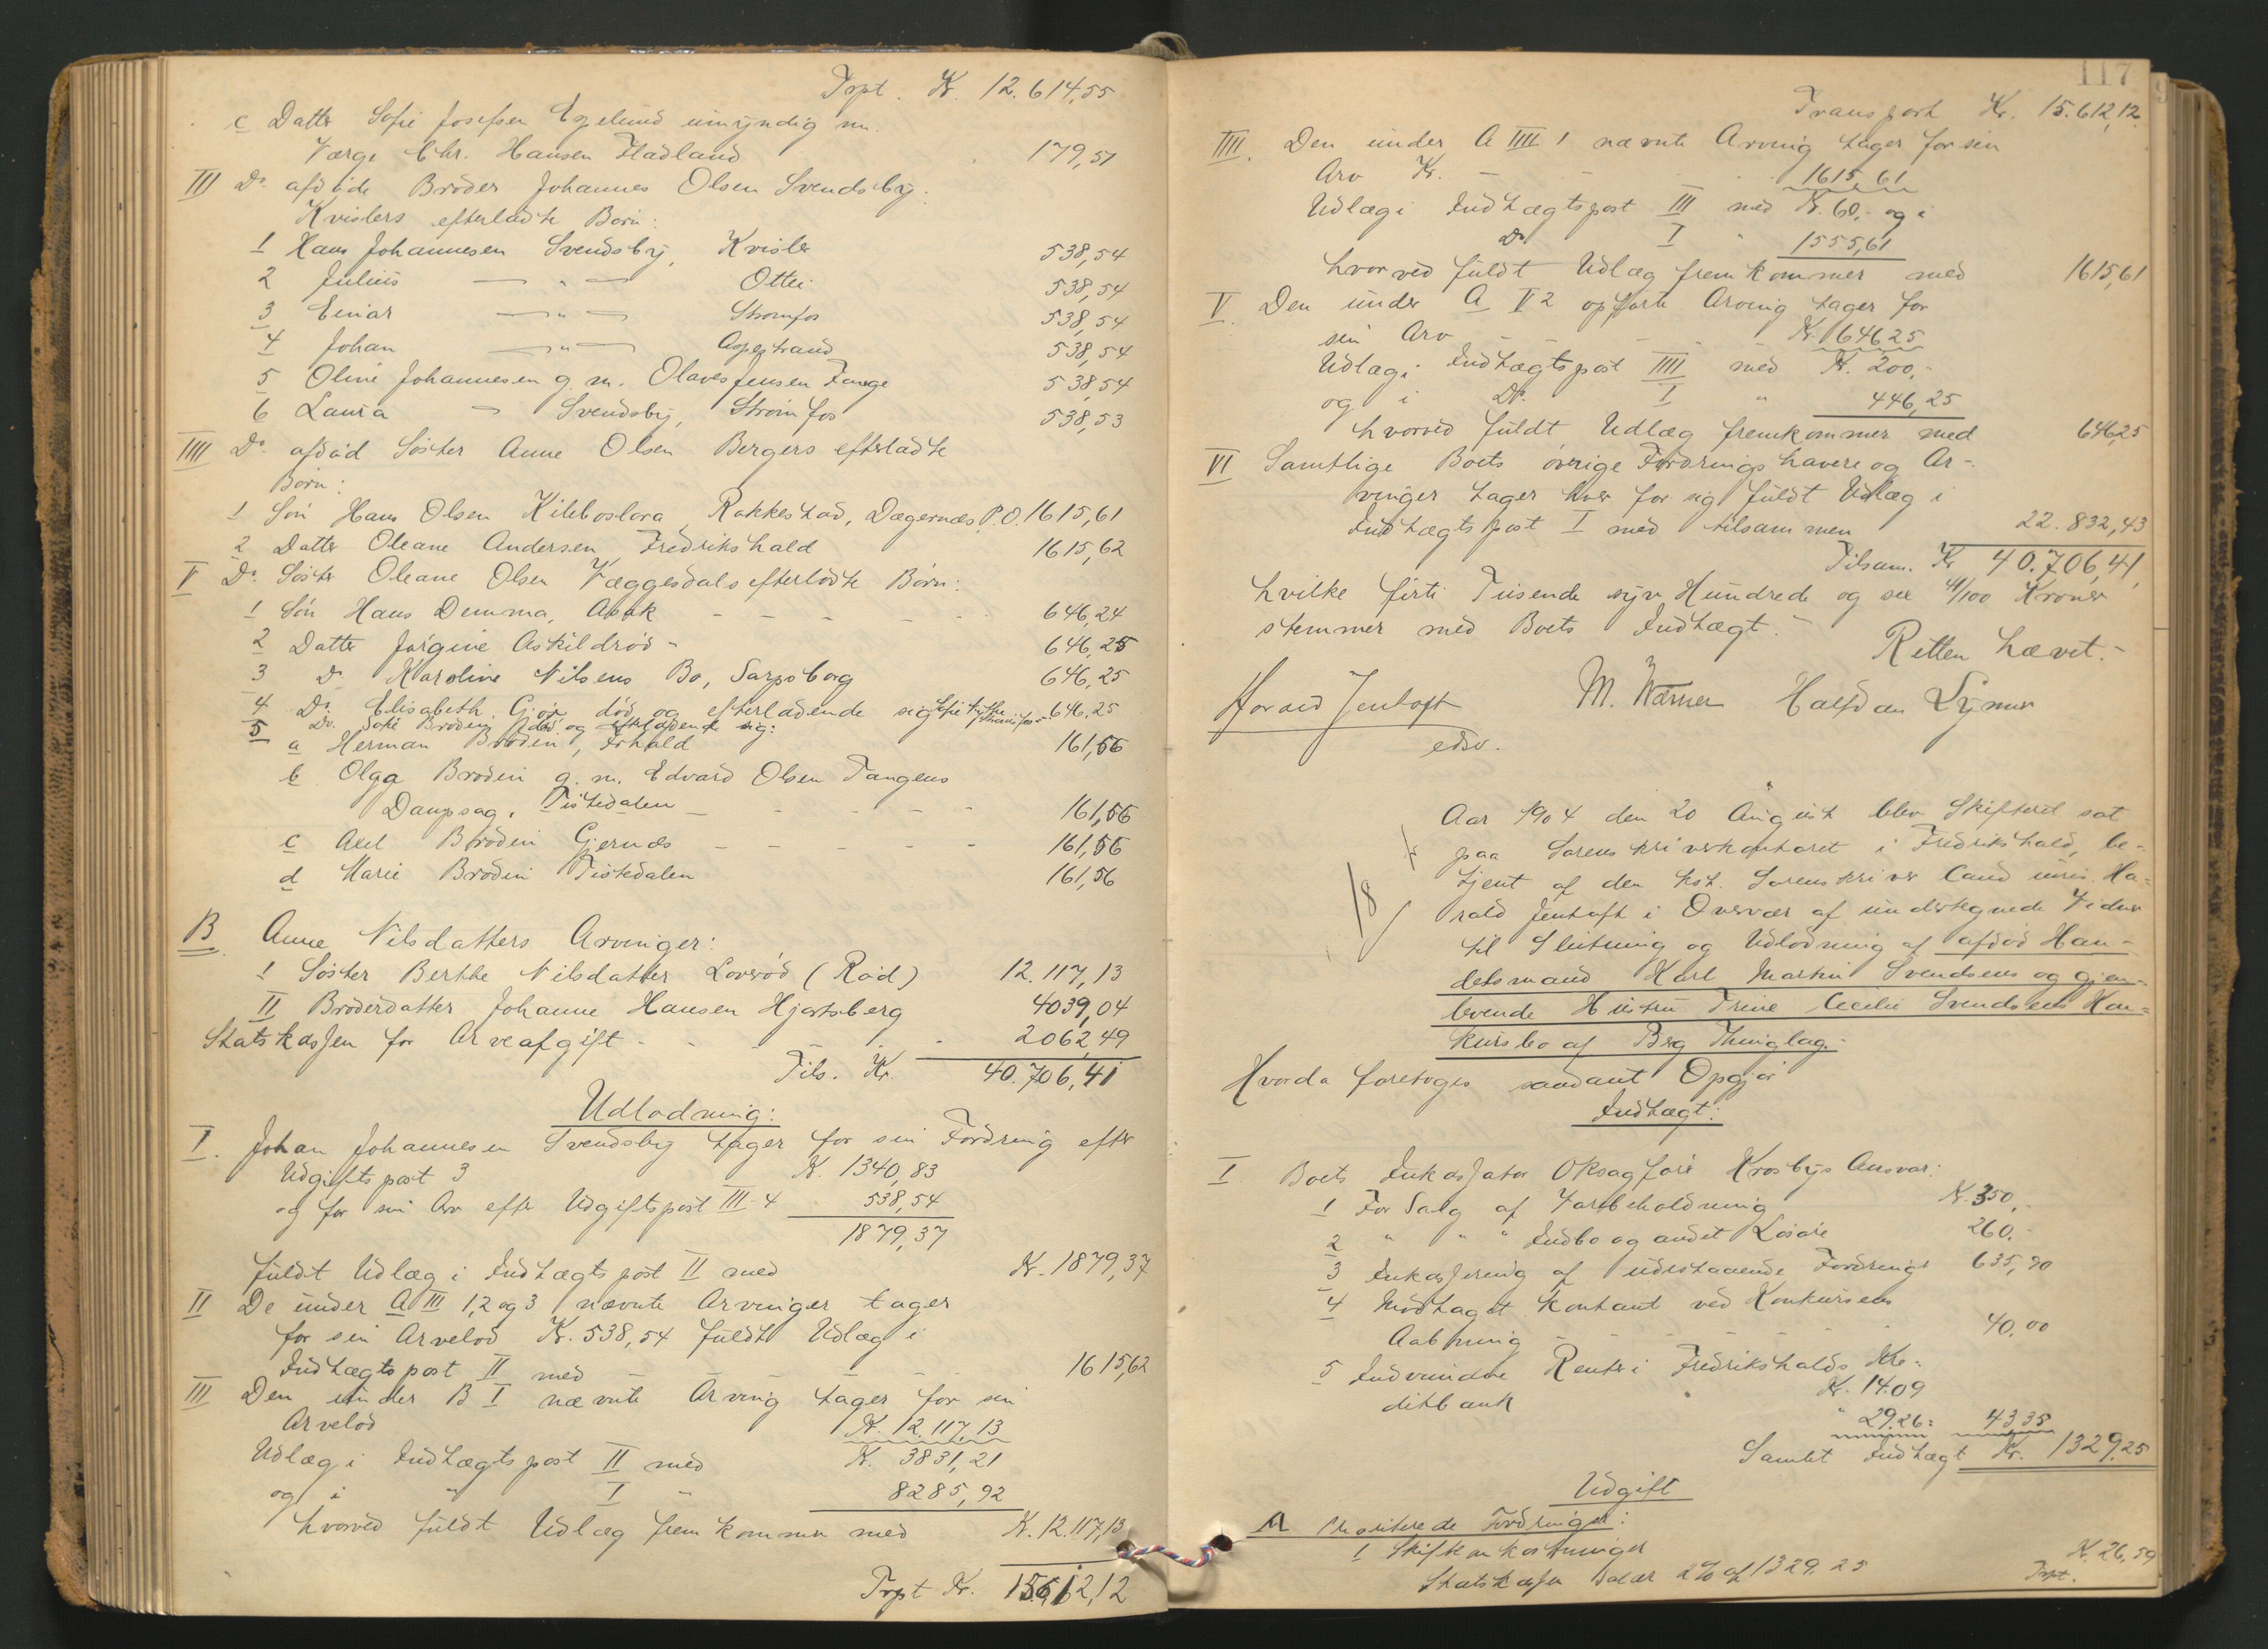 Trpt. Kr. 12.614,55
c Datter Sofie Josefsen Egelund umyndig m.
Værge Chr. Hansen Fladland 179,51
III Do afdøde Broder Johannes Olsen Svendsby
Kvislers efterladte Børn:
1 Hans Johannesen Svendsby, Kvisler 538,54
2 Julius — " — Ottei 538,54
3 Einar — " — Strømfos 538,54
4 Johan — " — Aspestrand 538,54
5 Oline Johannesen g. m. Olaves Jensen Tange 538,54
6 Laura — Svendsby, Strømfos 538,53
IIII Do afdød Søster Anne Olsen Bergers efterladte
Børn:
1 Søn Hans Olsen Kileboslora, Rakkestad, Dægernæs P.O. 1615,61
2 Datter Oleane Andersen, Fredrikshald 1615,62
V Do Søster Oleane Olsen Væggesdals efterlodte Børn:
1 Søn Hans Demma, Asak - - - - - 646,24
2 Datter Jørgine Askildrød - 646,25
3 Do Karoline Nilsens Bo, Sarpsborg 646,25
4 Do Elisabeth Gjøx død og efterladende sig 646,25
5 Do. Sofie Brodin død og efterladende sig:
a Herman Brodin, Frhald 161,56
b Olga Brodin g. m. Edvard Olsen Tangens
Dampsag. Tistedalen - - - - 161,56
c Axel Brodin Gjernæs - - - - - 161,56
d Marie Brodin Tistedalen 161,56
B Anne Nilsdatters Arvinger:
I Søster Berthe Nilsdatter Lovrød (Rød) 12.117,13
II Broderdatter Johanne Hansen Hjortsberg 4039,04
Statskassen for Arveafgift - - - 2062,49
Tils. Kr. 40.706,41
Udlodning:
I. Johan Johannesen Svendsby tager for sin Fordring efter
Udgiftspost 3 K. 1340,83
og for sin Arv efter Udgiftspost III-4 538,54
1879,37
fuldt Udlæg i Indtægtspost II med Kr. 1879,37
II De under A III 1, 2 og 3 nævnte Arvinger tager
for sin Arvelod Kr. 538,54 fuldt Udlæg i
Indtægtspost II med 1615,62
III Den under B I nævnte Arving tager for sin
Arvelod K. 12.117,13
Udlæg i Indtægtspost II med K. 3831,21
og i " I " 8285,92
hvorved fuldt Udlæg fremkommer med K. 12.117,13
Trpt Kr. 15.612,12
117
Transport Kr. 15.612,12
IIII. Den under A IIII 1 nævnte Arving tager for sin
Arv Kr. - 1615,61
Udlæg i Indtægtspost III med K. 60,- og i
Do I " 1555,61
hvorved fuldt Udlæg fremkommer med 1615,61
V. Den under A V 2 opførte Arving tager for
sin Arv - - - Kr. 646,25
Udlæg i Indtægtspost IIII med K. 200,-
og i Do. I " 446,25
hvorved fuldt Udlæg fremkommer med 646,25
VI Samtlige Boets øvrige Fordringshavere og Ar-
vinger tager hver for sig fuldt Udlæg i
Indtægtspost I med tilsammen 22.832,43
Tilsam. Kr 40.706,41,
hvilke firti Tusende syv Hundrede og sex 41/100 Kroner
stemmer med Boets Indtægt. -
Retten hævet. -
Harald Jentoft M. Warner Halfdan Lynner
edsv.
Aar 1904 den 20 August blev Skifteret sat
paa Sorenskriverkontoret i Fredrikshald, be-
tjent af den kst. Sorenskriver Cand. juris. Ha-
rald Jentoft i Overvær af undertegnede Vidner
til Slutning og Udlodning af afdød Han-
delsmand Karl Martin Svendsens og gjen-
levende Hustru Trine Cecilie Svendsens Kon-
kursbo af Berg Thinglag. -
Hvorda foretoges saadant Opgjør
Indtægt:
I Boets Inkassator Oksagfører Krosbys Ansvar:
1 For Salg af Varebeholdning K. 350,-
2 " " " Indbo og andet Løsøre 260,-
3 Inkassering af udestaaende Fordringer 635,90
4 Modtaget kontant ved Konkursens
Aabning - - - - - 40,00
5 Indvundne Renter i Fredrikshalds Kre-
ditbank " Kr. 14.09
" 29.26 = 43 35
Samlet Indtægt Kr. 1329,25
Udgift
A Prioriterede Fordringer:
1 Skifteomkostninger
Statskassen Salær 2% af 1329.25 K. 26,59
Trpt.